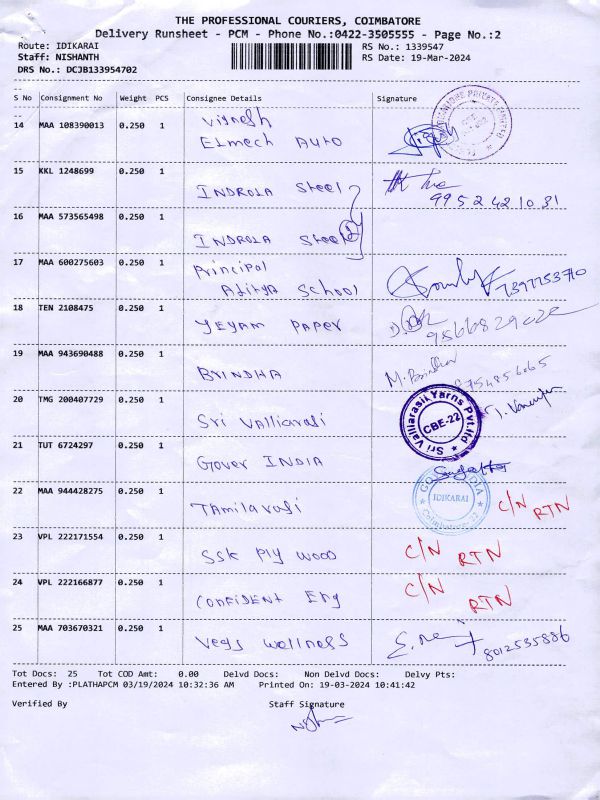 THE PROFESSIONAL COURIERS, COIMBATORE
Delivery Runsheet - PCM - Phone No.:0422-3505555 - Page No.:2
Route: IDIKARAI RS No.: 1339547
Staff: NISHANTH RS Date: 19-Mar-2024
DRS No.: DCJB133954702
S No Consignment No Weight PCS Consignee Details Signature
14 MAA 108390013 0.250 1 Vignesh
Elmech Auto
15 KKL 1248699 0.250 1 INDROLA Steel
9952421081
16 MAA 573565498 0.250 1 INDROLA Steel
17 MAA 600275603 0.250 1 Principal
Aditya School 7397753710
18 TEN 2108475 0.250 1 Yeyam Paper
19 MAA 943690488 0.250 1 BRINDHA M. Brindha
8754856065
20 TMG 200407729 0.250 1 Sri Valliarasi
Sri Vallarasi Yarns Pvt.Ltd
CBE-22
21 TUT 6724297 0.250 1 Gover INDIA
22 MAA 944428275 0.250 1 Tamilarasi C/N RTN
IDIKARAI
Coimbatore-22
23 VPL 222171554 0.250 1 SSK Ply wood C/N RTN
24 VPL 222166877 0.250 1 CONFIDENT Eng C/N RTN
25 MAA 703670321 0.250 1 Vegs wellness 8012535886
Tot Docs: 25 Tot COD Amt: 0.00 Delvd Docs: Non Delvd Docs: Delvy Pts:
Entered By :PLATHAPCM 03/19/2024 10:32:36 AM Printed On: 19-03-2024 10:41:42
Verified By Staff Signature